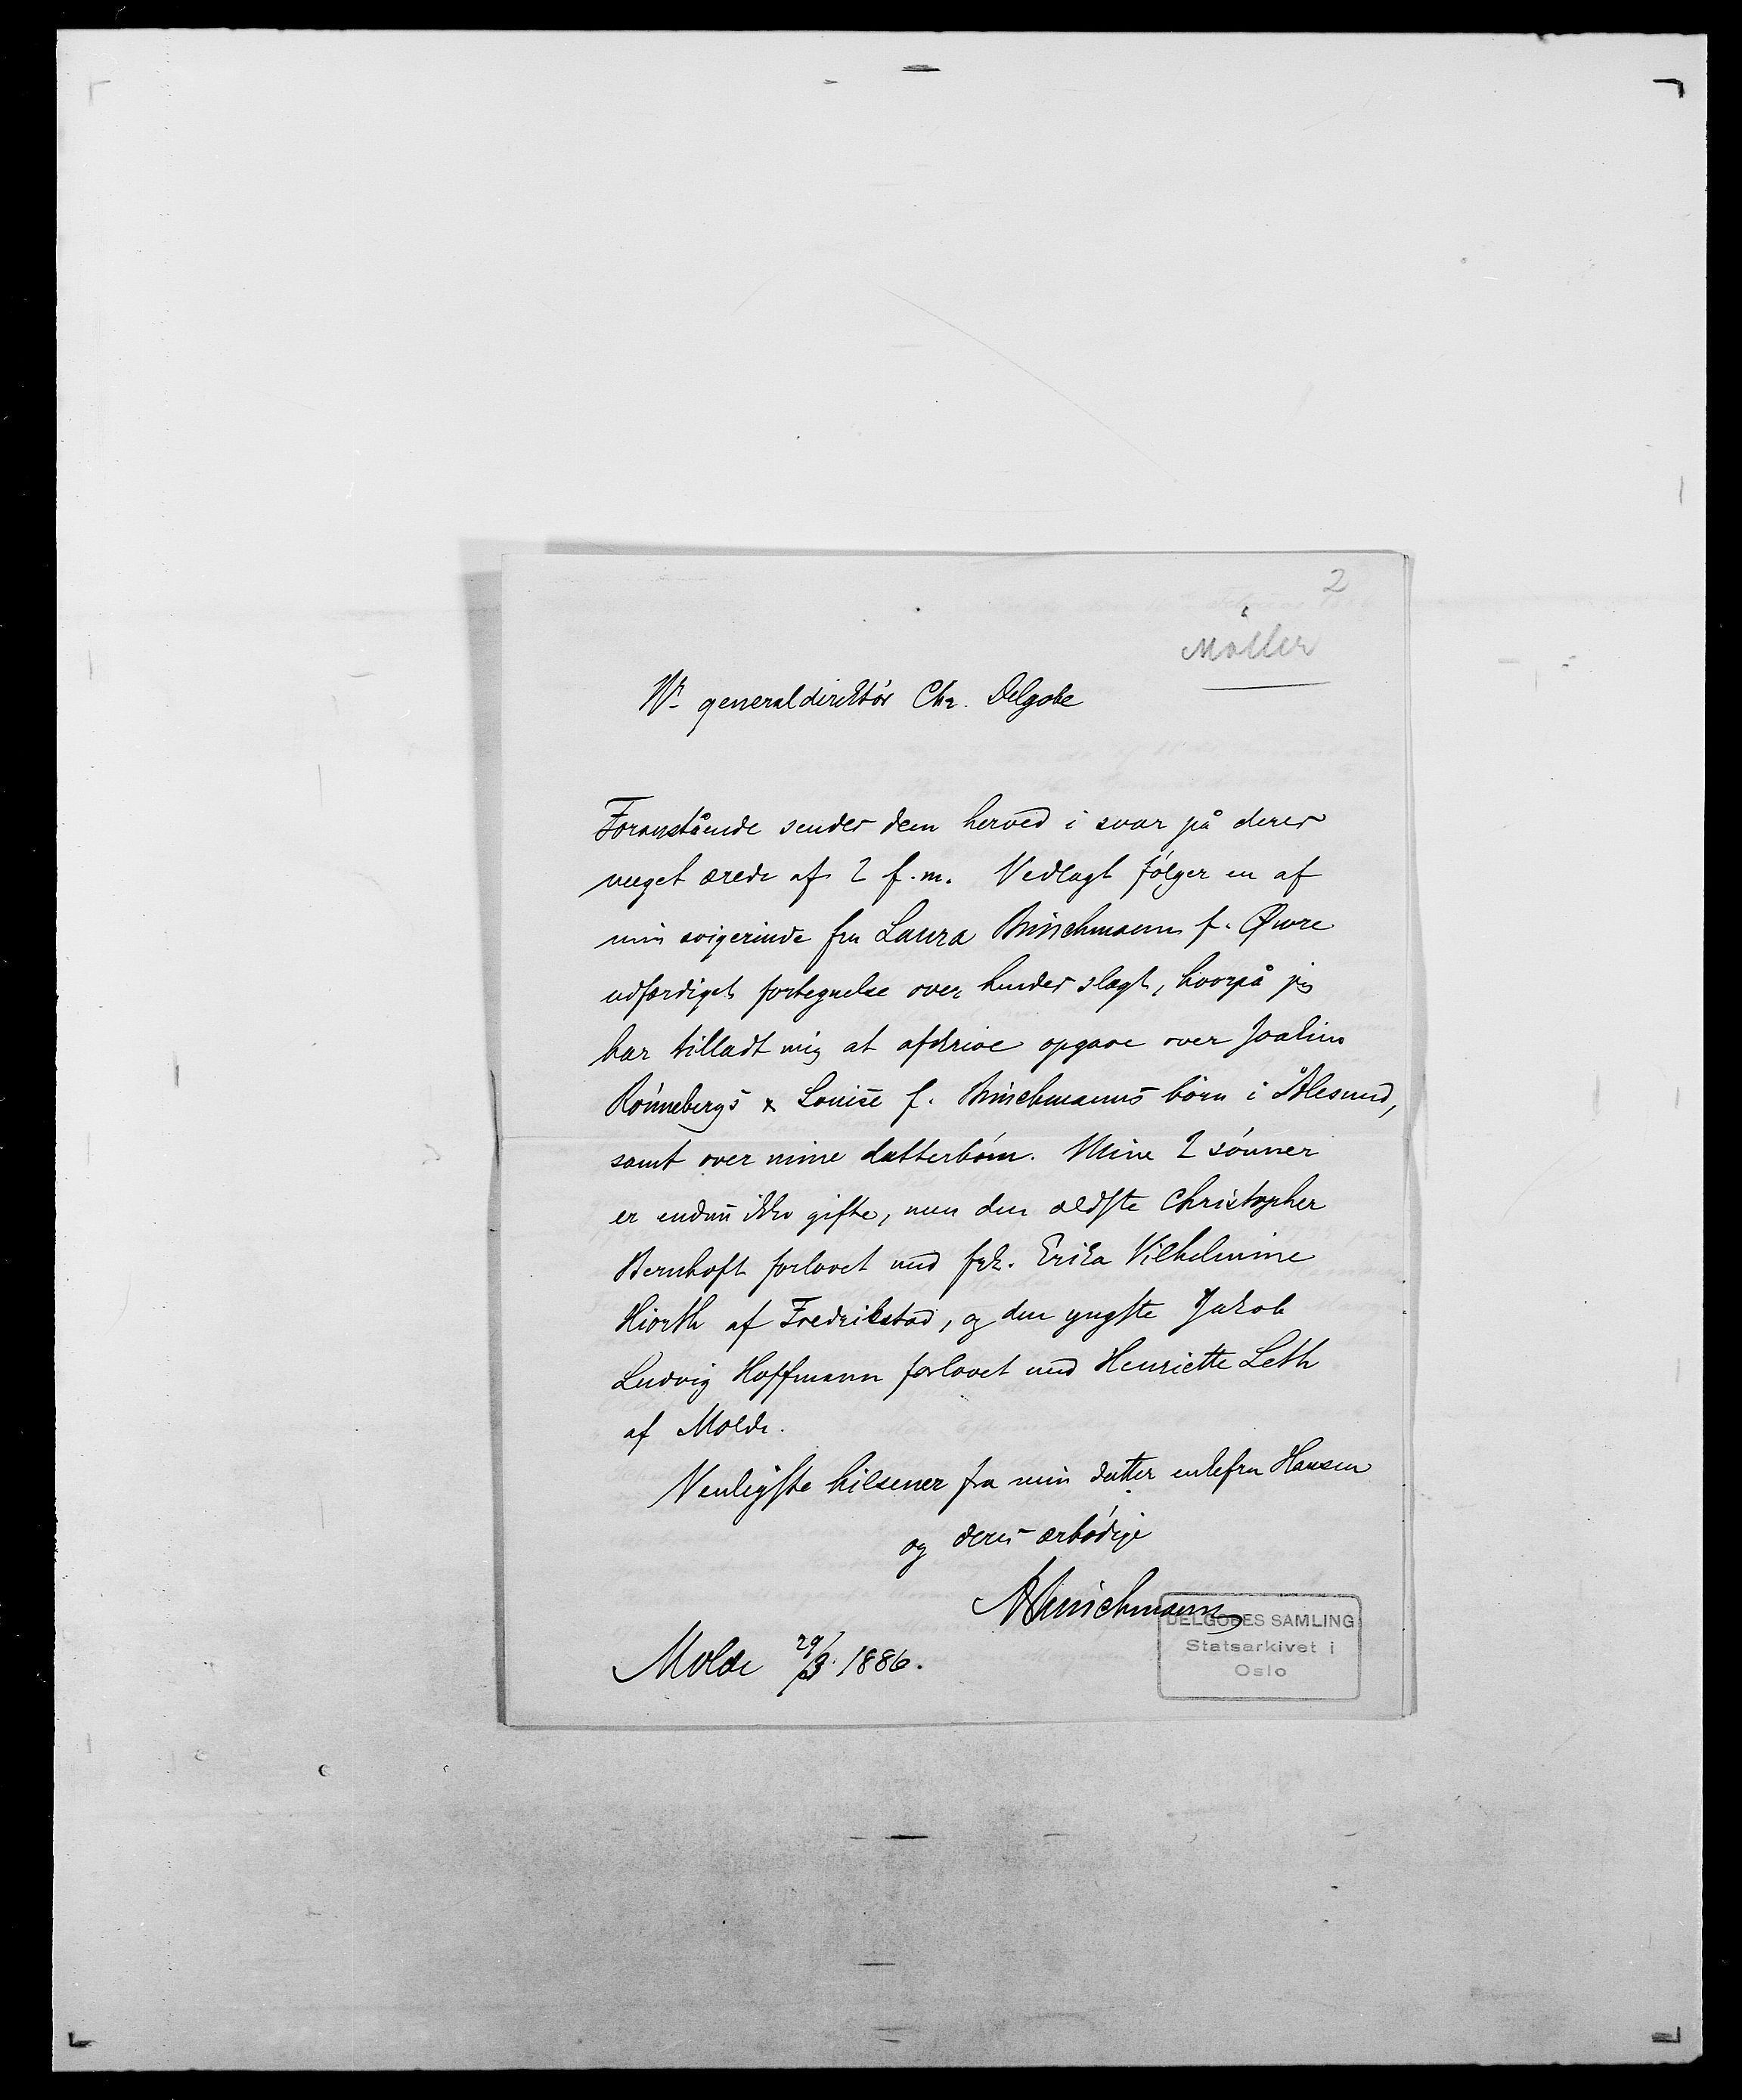 2
Møller
Hr generaldirektör Chr. Delgobe
Foranstående sendes dem herved i svar på deres
meget ærede af 2 f.m. Vedlagt fölger en af
min svigerinde fru Laura Brinchmann f. Øwre
udfærdiget fortegnelse over hendes slægt, hvorpå jeg
har tilladt mig at afskrive opgave over Joakim
Rönnebergs & Louise f. Brinchmanns börn i Ålesund,
samt over mine datterbörn. Mine 2 sönner
er endnu ikke gifte, men den ældste Christopher
Bernhoft forlovet med frk. Erika Vilhelmine
Hiorth af Fredrikstad, og den yngste Jakob
Ludvig Hoffmann forlovet med Henriette Leth
af Molde.
Venligste hilsener fra min datter enkefru Hansen
og deres ærbödige
Brinchmann
Molde 29/3 1886.
DELGOBES SAMLING
Statsarkivet i
Oslo